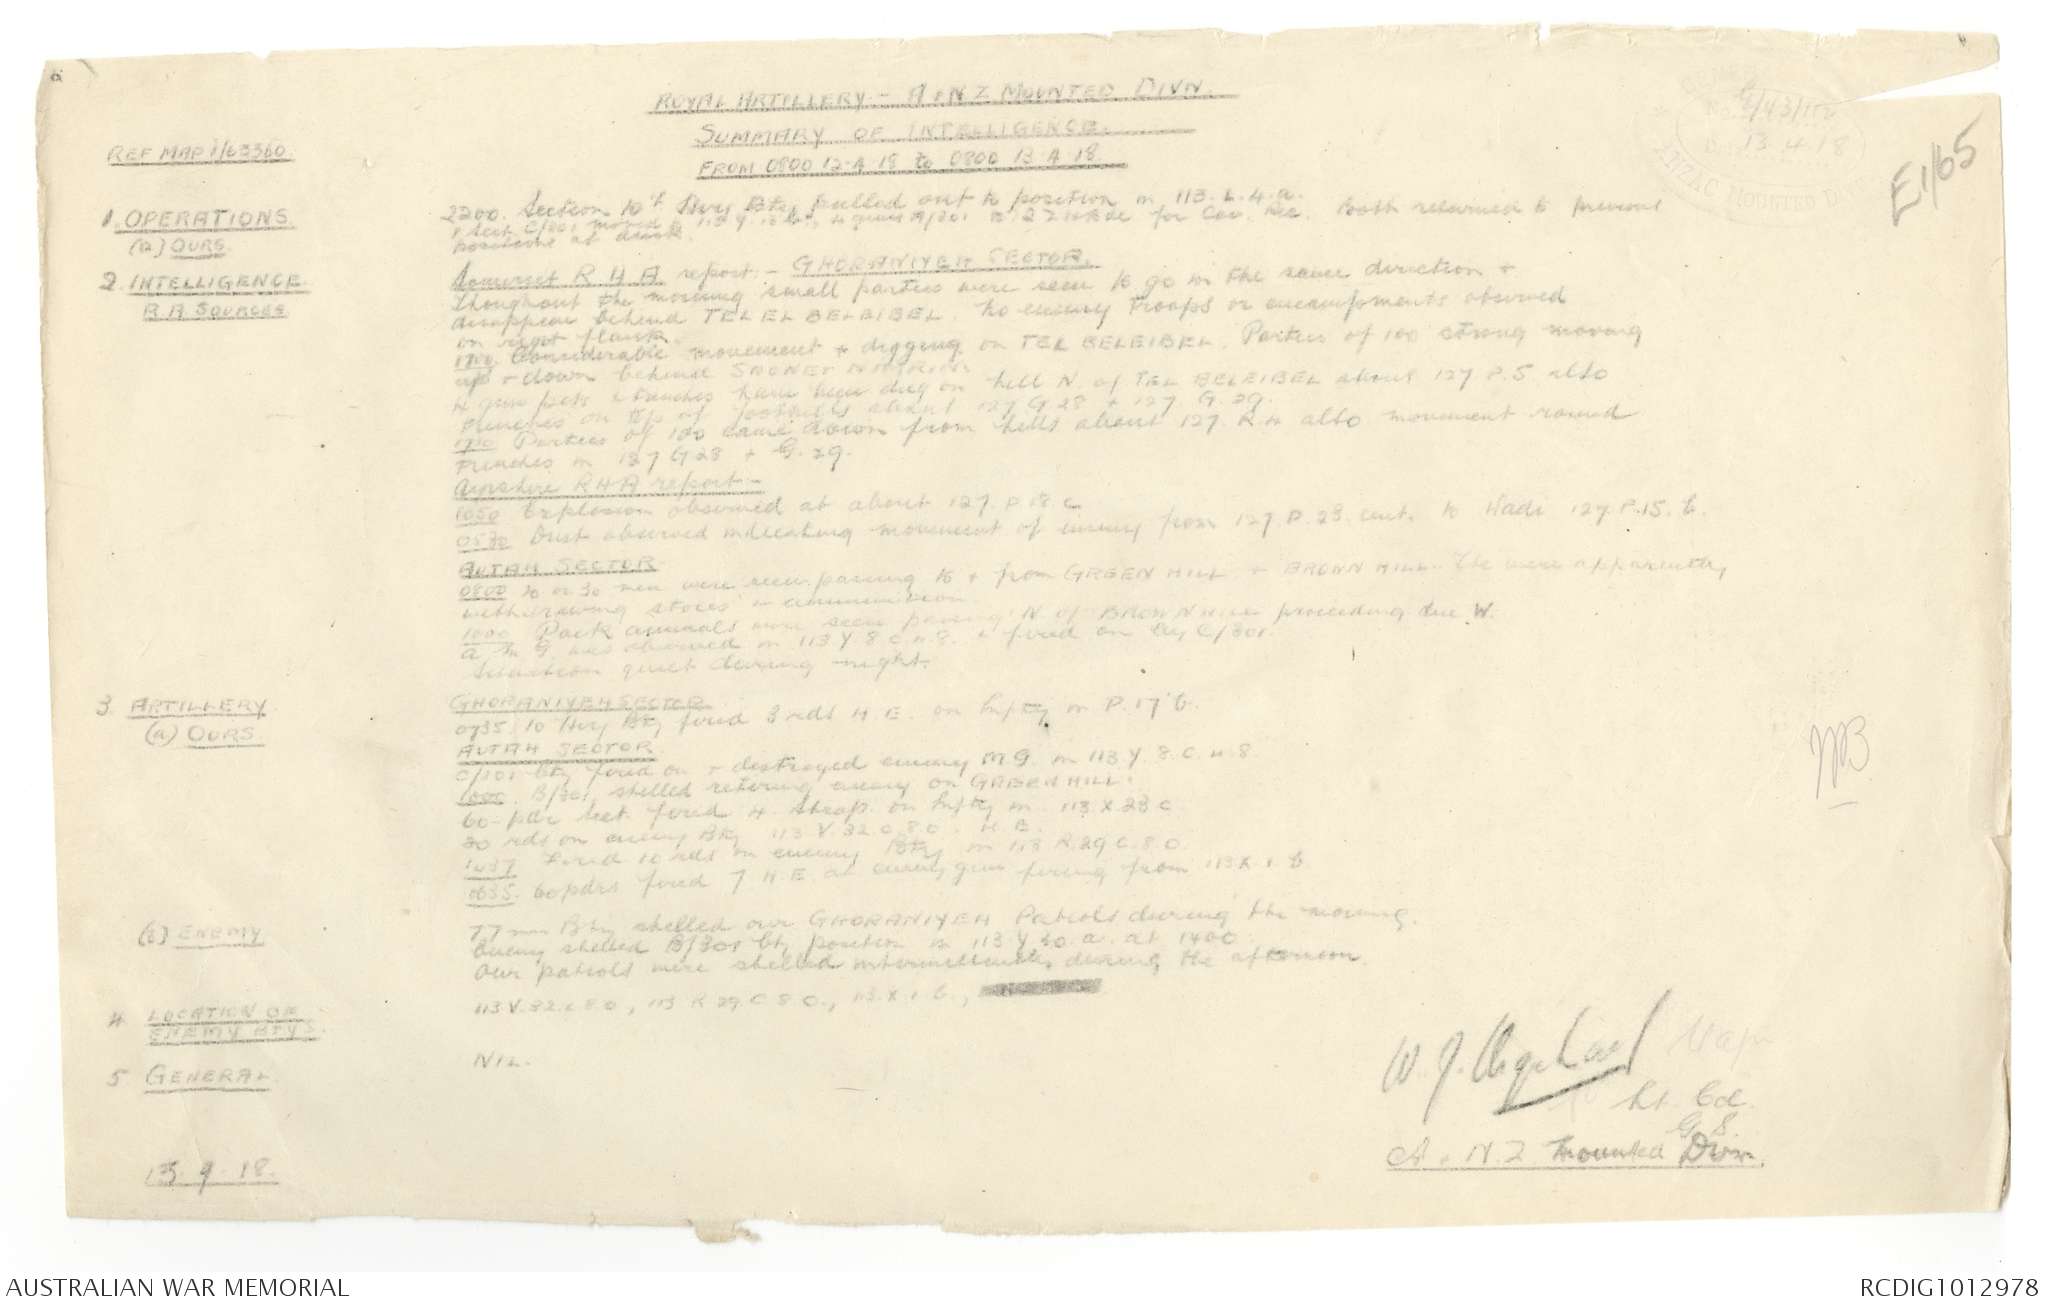 ROYAL ARTILLERY - A & N Z MOUNTED DIVN.
SUMMARY OF INTELLIGENCE.
FROM 0800 12.4.18 to 0800 13.4.18
REF MAP 1/63360
GENERAL
No. G/43/112
13 4 18
ANZAC MOUNTED DIV
E1/65
1. OPERATIONS
(a) OURS.
2200. Section 10th Hvy Bty pulled out to position in 113.L.4.a.
1 Sect C/301 moved to 113 Y, 4 guns A/301 to for Cav. Both returned to previous
positions at dusk.
2 INTELLIGENCE
R.A SOURCES
Somerset R H A report:- GHORANIYEH SECTOR.
Thoughout the morning small parties were seen to go in the same direction &
disappear behind TEL EL BELEIBEL. No enemy troops or encampments observed
on right flank.
1700 Considerable movement & digging on TEL BELEIBEL. Parties of 100 strong moving
up & down behind
4 gun pits & trenches have been dug on hill N. of TEL BELEIBEL about 127.P.5 also
trenches on top of foothills about 127 G 28 & 127. G. 29.
Parties of 100 came down from hills about 127. R.4 also movement round
trenches in 127 G 28 & G. 29.
Ayrshire RHA report:-
1050 Explosion observed at about 127. P 18. c.
Dust observed indicating movement of enemy from 127 P.23. cent. to Wadi 127.P.15.b.
AUJAH SECTOR
0800 20 or 30 men were seen passing to & from GREEN HILL & BROWN HILL. The were apparently
withdrawing stores or ammunition.
1000 Pack animals were seen passing N. of BROWN HILL proceeding due W.
A M G was observed in 113 Y 8 C 4.8. & fired on by C/301.
Situation quiet during night.
3 ARTILLERY
(a) OURS.
GHORANIYEH SECTOR
0735. 10 Hvy Bty fired 3 rds H.E. on Infty in P.17 b.
AUJAH SECTOR.
C/301 bty fired on & destroyed enemy M G. in 113. Y. 8. C. 4 8
1000. B/301 shelled retiring enemy on GREEN HILL.
60-pdr Sect. fired 4 Shrap. on Infty in 113 X 23 c
20 rds on enemy Bty 113 V.32 c 8.0. H.E.
1437 Fired 10 rds on enemy Bty in 113 R.29 C.8.0.
0635. 60pdrs fired 7 H.E. on enemy gun firing from 113X.1.b.
(b) ENEMY
77mm Bty shelled our GHORANIYEH Patrols during the morning.
Enemy shelled B/301 bty position in 113 Y 30.a. at 1400
Our patrols were shelled intermittently during the afternoon.
4 LOCATION OF
ENEMY BTYS.
113 V.32.c 8.0, 113 R 29.C 8.0., 113.X.1.b.,
5 GENERAL.
NIL.
W. J. Urquhart Major
Lt. Col.
G.S.
A & N.Z Mounted Divn.
AUSTRALIAN WAR MEMORIAL
RCDIG1012978